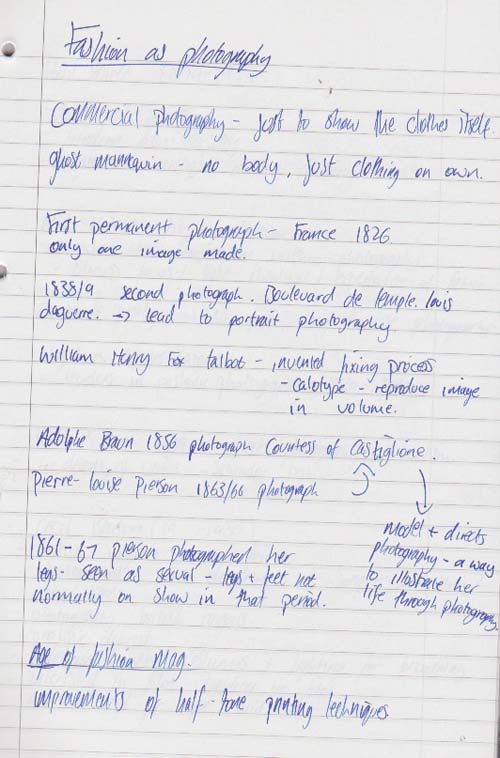 Fashion as photography
Commercial photography - just to show the clothes itself.
ghost mannequin - no body, just clothing on own.
First permanent photograph - France 1826.
only one image made.
1838/9 second photograph. Boulevard de temple. louis
daguerre. → lead to portrait photography
William Henry Fox talbot - invented fixing process
- calotype - reproduce image
in volume.
Adolphe Braun 1856 photograph Countess of Castiglione.
Pierre-louise Pierson 1863/66 photograph
model + directs
photography - a way
to illustrate her
life through photography.
1861-67 pierson photographed her
legs - seen as sexual - legs + feet not
normally on show in that period.
Age of fashion mag.
improvements of half-tone printing techniques